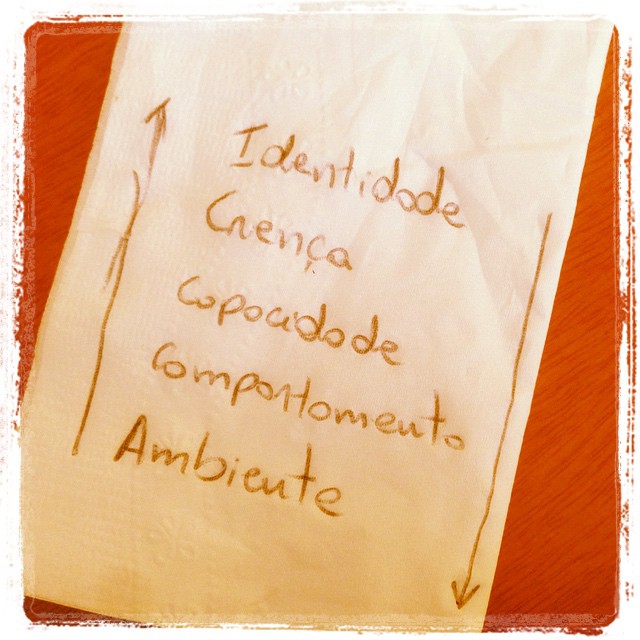 Identidade
Crença
Capacidade
Comportamento
Ambiente